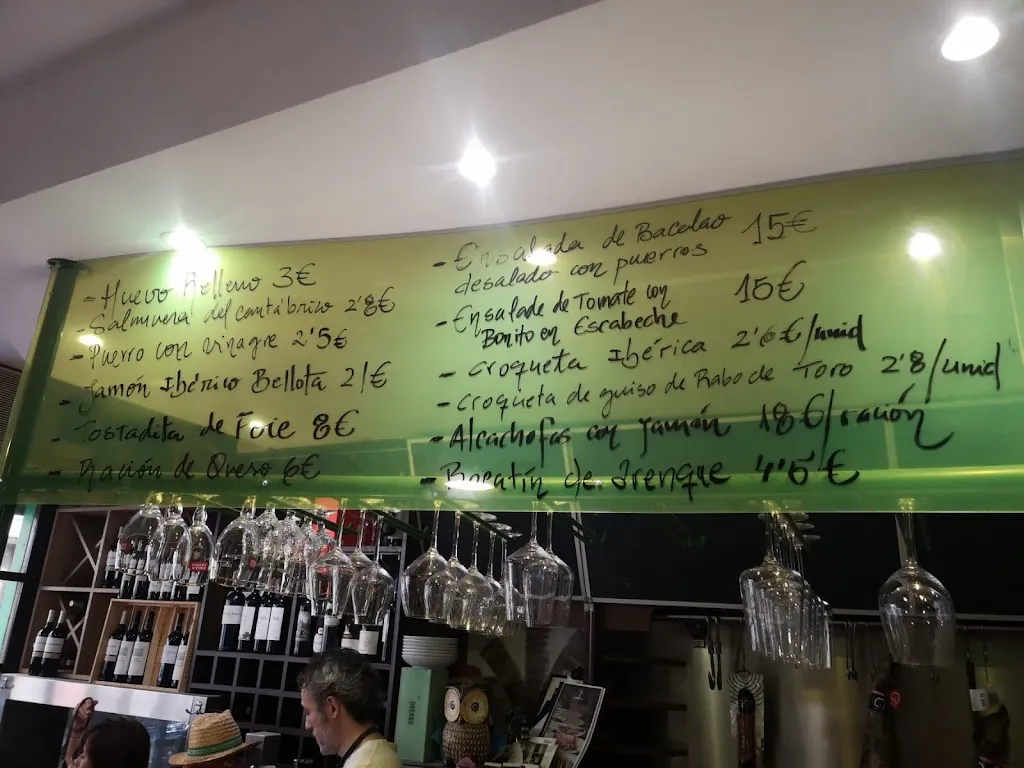 - Huevo Relleno 3€
- Salmuera del cantábrico 2'8€
- Puerro con vinagre 2'5€
- Jamón Ibérico Bellota 21€
- Tostadita de Foie 8€
- Ración de Queso 6€
- Ensalada de Bacalao 15€
desalado con puerros
- Ensalade de Tomate con 15€
Bonito en Escabeche
- croqueta Ibérica 2'6€/unid
- croqueta de guiso de Rabo de Toro 2'8/unid
- Alcachofas con jamón 18€/ración
- Bocatín de Arenque 4'5€